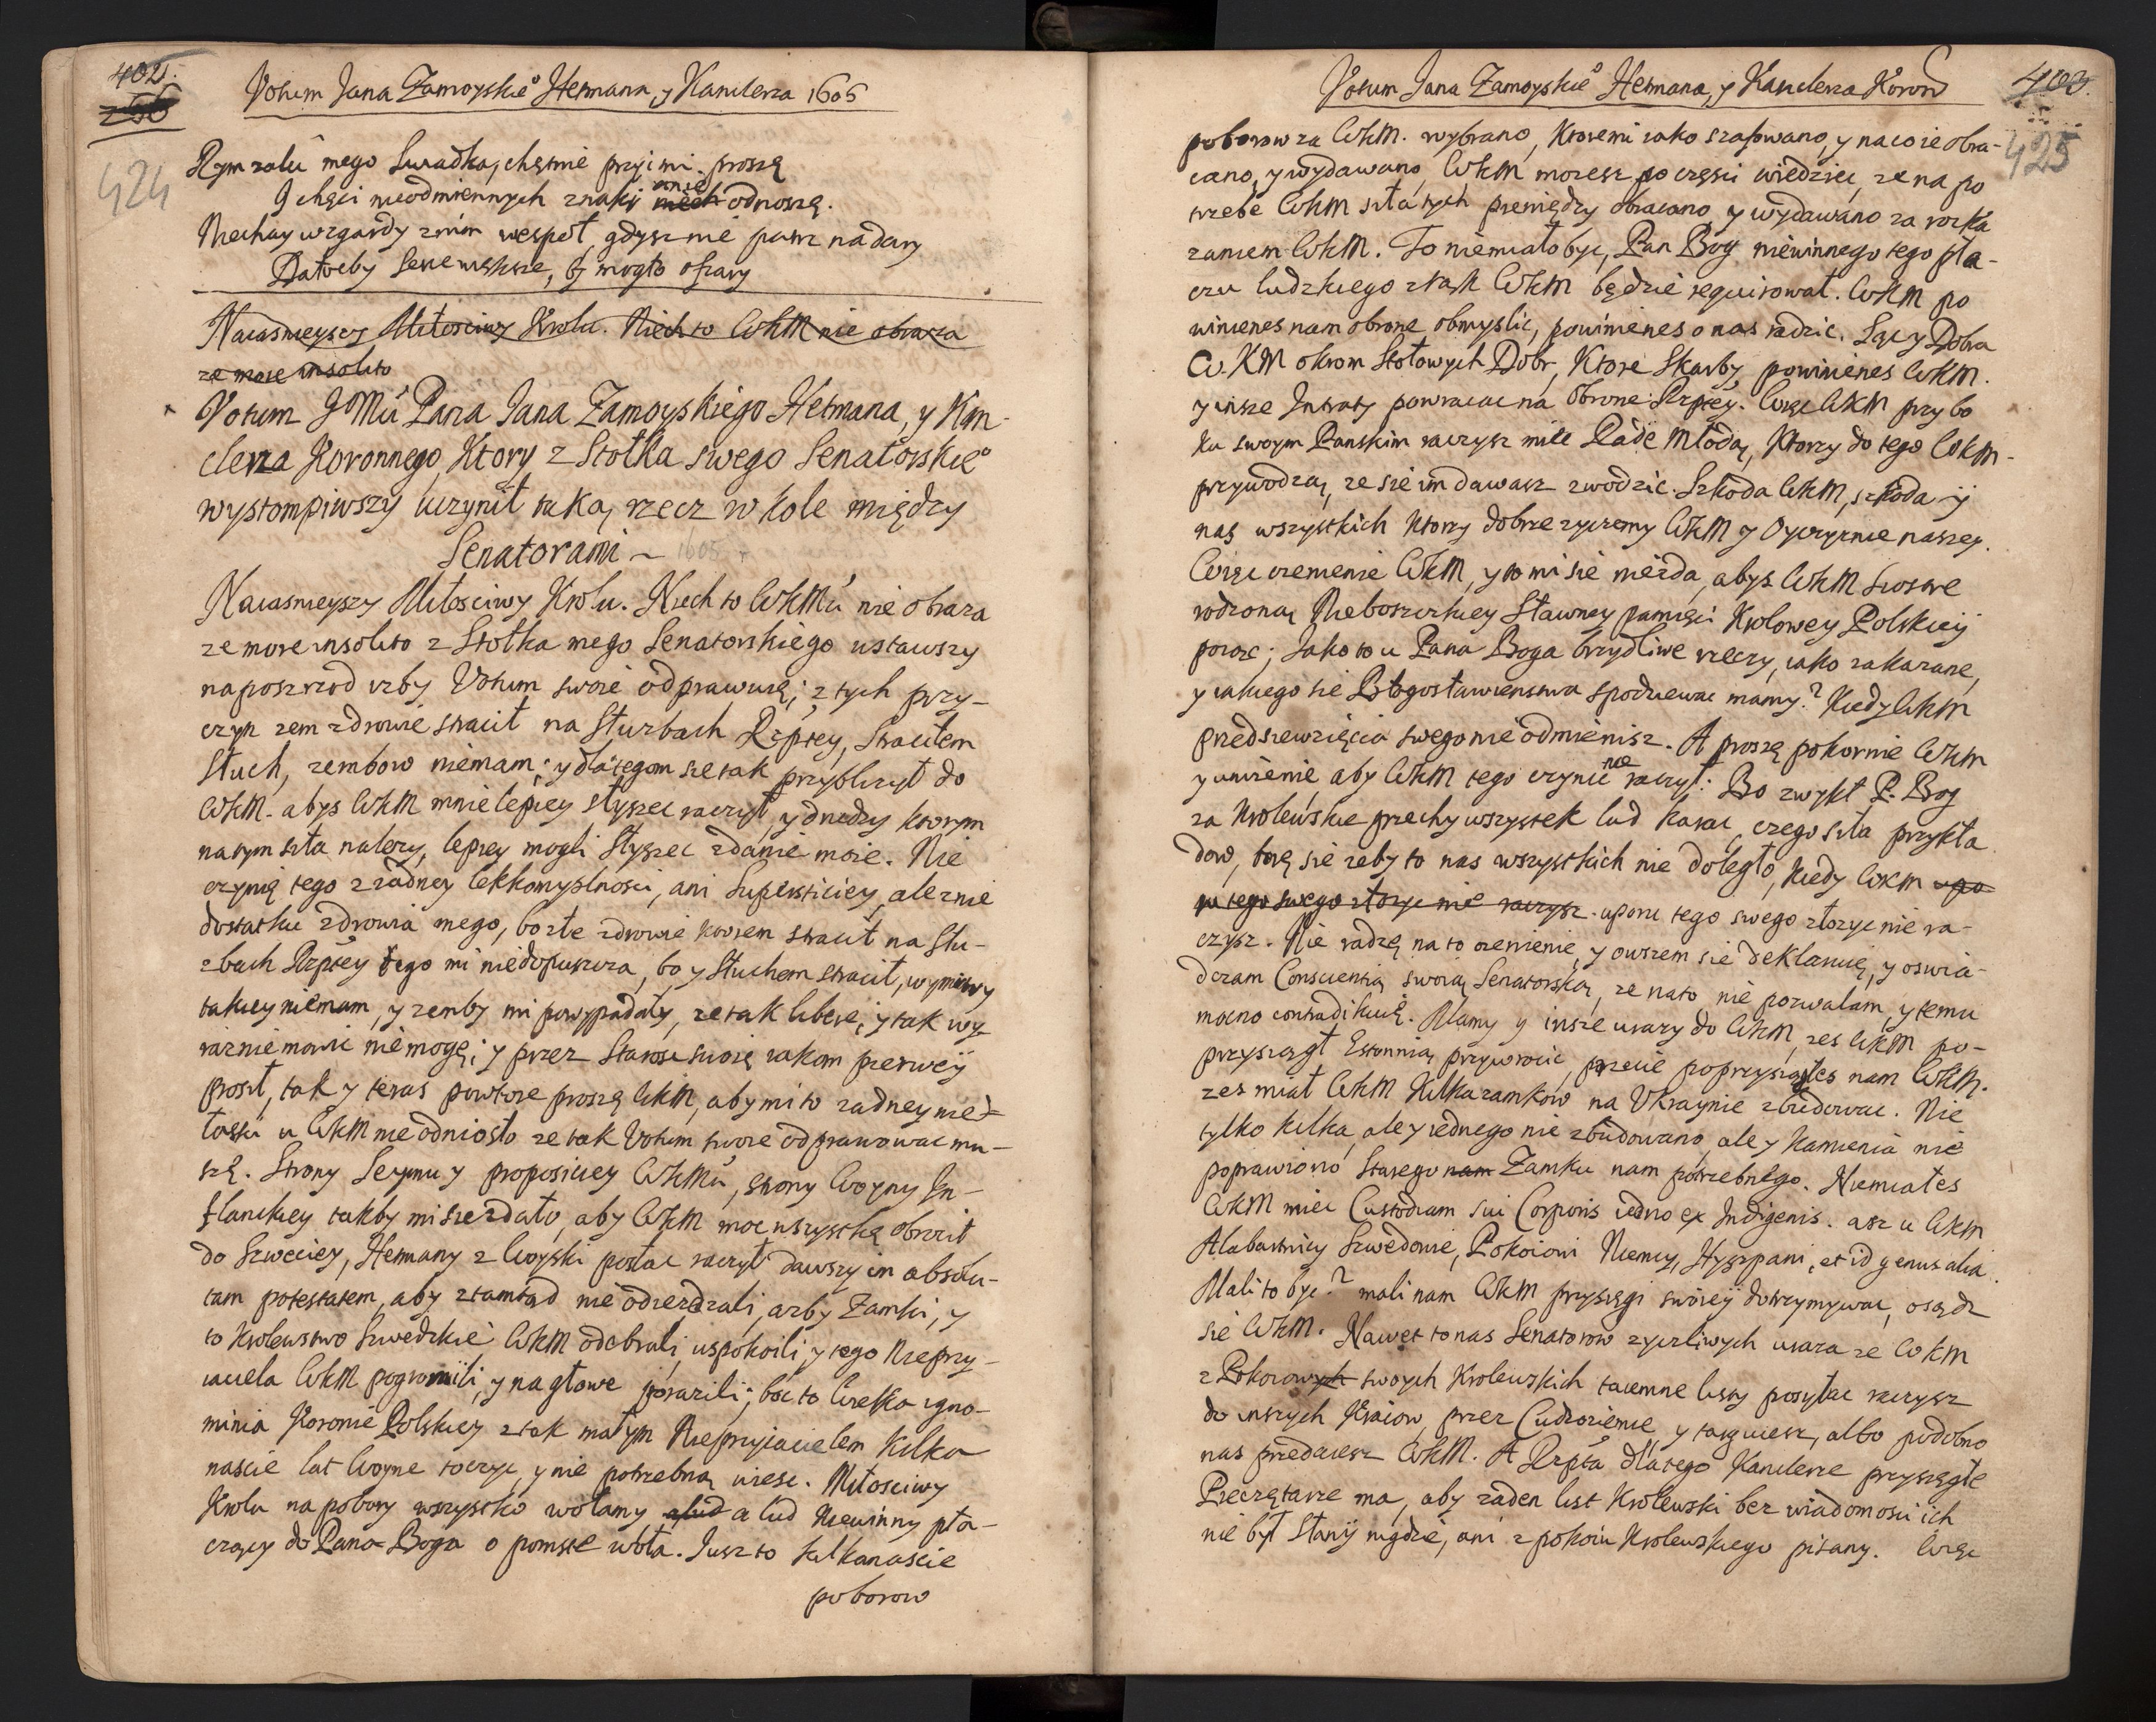 402.
256
Votum Jana Zamoyskie° Hetmana, y Kanclerza 1606
424
Rym zalu mego Swiadka, chętnie przyimi proszę
I chęci nieodmiennych znaki niech odnoszę.
Niechay wzgardy zmim wespoł, gdysz nie patrz na dary
Dałoby Serce większe, by mogło ofiary
Naiasnieyszy Miłosciwy Krolu. Niech to WKM nie obraza
ze more insolito
Votum JMci Pana Jana Zamoyskiego Hetmana, y Kan-
clerza Koronnego, Ktory z Stołka swego Senatorskie°
wystompiwszy uczynił taką rzecz w kole między
Senatorami ~ 1605
Naiasnieyszy Miłosciwy Krolu. Niech to WKMci nie obraza
ze more insolito z Stołka mego Senatorskiego ustawszy
na poszrzod izby Votum swoie odprawuię; z tych przy-
czyn zem zdrowie stracił na Słuzbach Rzptey, Straciłem
Słuch, zembow niemam; y dla tegom sie tak przyblizył do
WKM. abys WKM mnie lepiey słyszec raczył, y drudzy ktorym
na tym siła nalezy, lepiey mogli Słyszec zdanie moie. Nie
czynię tego z zadney lekkomyslnosci, ani Superstitiey, ale z nie
dostatku zdrowia mego, bo złe zdrowie ktorem stracił na Słu-
zbach Rzptey tego mi niedopuszcza, bo y Słuchem stracił, wymowy
takiey niemam, y zemby mi powypadały, ze tak libere, y tak wy
raznie mowic nie mogę; y przez Starosc swoię iakom pierwey
prosił, tak y teras powtore proszę WKM, aby mi to zadney nieł-
łaski u WKM nie odniosło ze tak Votum swoie odprawowac mu-
szę. Strony Seymu y propositiey WKMci, strony Woyny In-
flanckiey takby mi sie zdało, aby WKM moc wszystkę obrocił
do Szweciey, Hetmany z Woyski posłac raczył dawszy im absolu-
tam potestatem, aby ztamtąd nie odiezdzali, azby Zamki, y
to Krolewstwo Szwedzkie WKM odebrali, uspokoili y tego Nieprzy-
iaciela WKM pogromili, y na głowe porazili; boc to wielka igno-
minia Koronie Polskiey z tak małym Nieprzyiacielem Kilka
nascie lat Woyne toczyc, y nie potrzebną wiesc. Miłosciwy
Krolu na pobory wszystko wołamy alud a lud Niewinny pła-
czący do Pana Boga o pomste woła. Jusz to kilkanascie
poborow
Votum Jana Zamoyskie° Hetmana, y Kanclerza Koron
403.
425
poborow za WKM. wybrano, Ktoremi iako szafowano, y na co ie obra-
cano, y wydawano, WKM mozesz po częsci wiedziec, ze na po
trzebe WKM siła tych pieniędzy obracano y wydawano za rozka
zaniem WKM. To niemiało byc, Pan Bog niewinnego tego pła-
czu ludzkiego z rąk WKM będzie requirował. WKM po
winienes nam obrone obmyslic, powinienes o nas radzic. Są y Dobra
W. KM okrom Stołowych Dobr, Ktore Skarby, powinienes WKM.
y insze Intraty powracac na Obrone Rzptey. Więc WKM przy bo
ku swoym Panskim raczysz miec Radę Młodą, Ktorzy do tego WKM.
przywodzą, ze sie im dawasz zwodzic. Szkoda WKM, szkoda y
nas wszystkich ktorzy dobrze zyczemy WKM y Oyczyznie naszey.
Więc ozenienie WKM, y to mi sie niezda, abys WKM Siostre
rodzoną Nieboszczkiey Sławney pamięci Krolowey Polskiey
poiąc; Jako to u Pana Boga brzydliwe rzeczy, iako zakazane,
y iakiego sie Błogosławienstwa spodziewac mamy? Kiedy WKM
przedsiewzięcia swego nie odmienisz. A proszę pokornie WKM
y unizenie, aby WKM tego czynic nie raczył: Bo zwykł P. Bog
za Krolewskie grzechy wszystek lud karac, czego siła przykła
dow, boię sie zeby to nas wszystkich nie doległo, Kiedy WKM upo
ru tego swego złozyc nie raczysz. uporu tego swego złozyc nie ra-
czysz. Nie radzę na to ozenienie, y owszem sie deklaruię, y oswia-
dczam Conscientią swoią Senatorską, ze na to nie pozwalam, y temu
mocno contradikuię. Mamy y insze urazy do WKM, zes WKM po-
przysiągł Estonnią przywrocic, przecie poprzysiągłes nam WKM.
zes miał WKM Kilka zamkow na Ukraynie zbudowac. Nie
tylko kilka, ale y iednego nie zbudowano, ale y Kamienia nie
poprawiono Starego nam Zamku nam potrzebnego. Niemiałes
WKM miec Custodiam sui Corporis iedno ex Indigenis. asz u WKM
Alabartnicy Szwedowie, Pokoiowi Niemcy, Hyszpani, et id genus alia.
Mali to byc? mali nam WKM przysięgi swoiey dotrzymywac, osądz
sie WKM. Nawet to nas Senatorow zyczliwych uraza ze WKM
z Pokoiowych swoych Krolewskich taiemne listy posyłac raczysz
do inszych Kraiow, przez Cudzoziemce y targuiesz, albo podobno
nas przedaiesz WKM. A Rzpta dlatego Kanclerze przysięgłe
Pieczętarze ma, aby zaden list Krolewski bez wiadomosci ich
nie był Słany nigdzie, ani z pokoiu Krolewskiego pisany. Więc